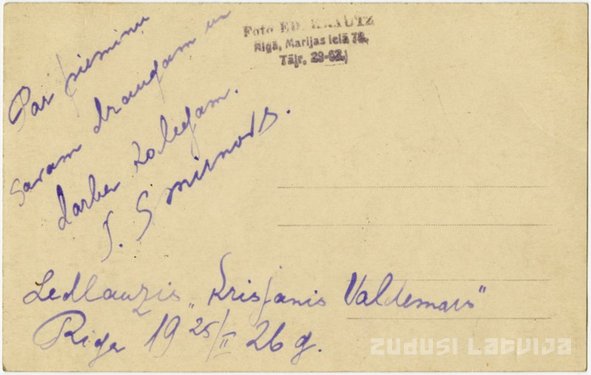 Foto ED. KRAUTZ
Rīgā, Marijas ielā 76.
Tālr. 29-62.
Par piemiņu
savam draugam un
darba kolegam.
J. Smirnovs.
Ledlauzis „Krisjanis Valdemars"
Riga 19 25/II 26 g.
zudusi Latvija